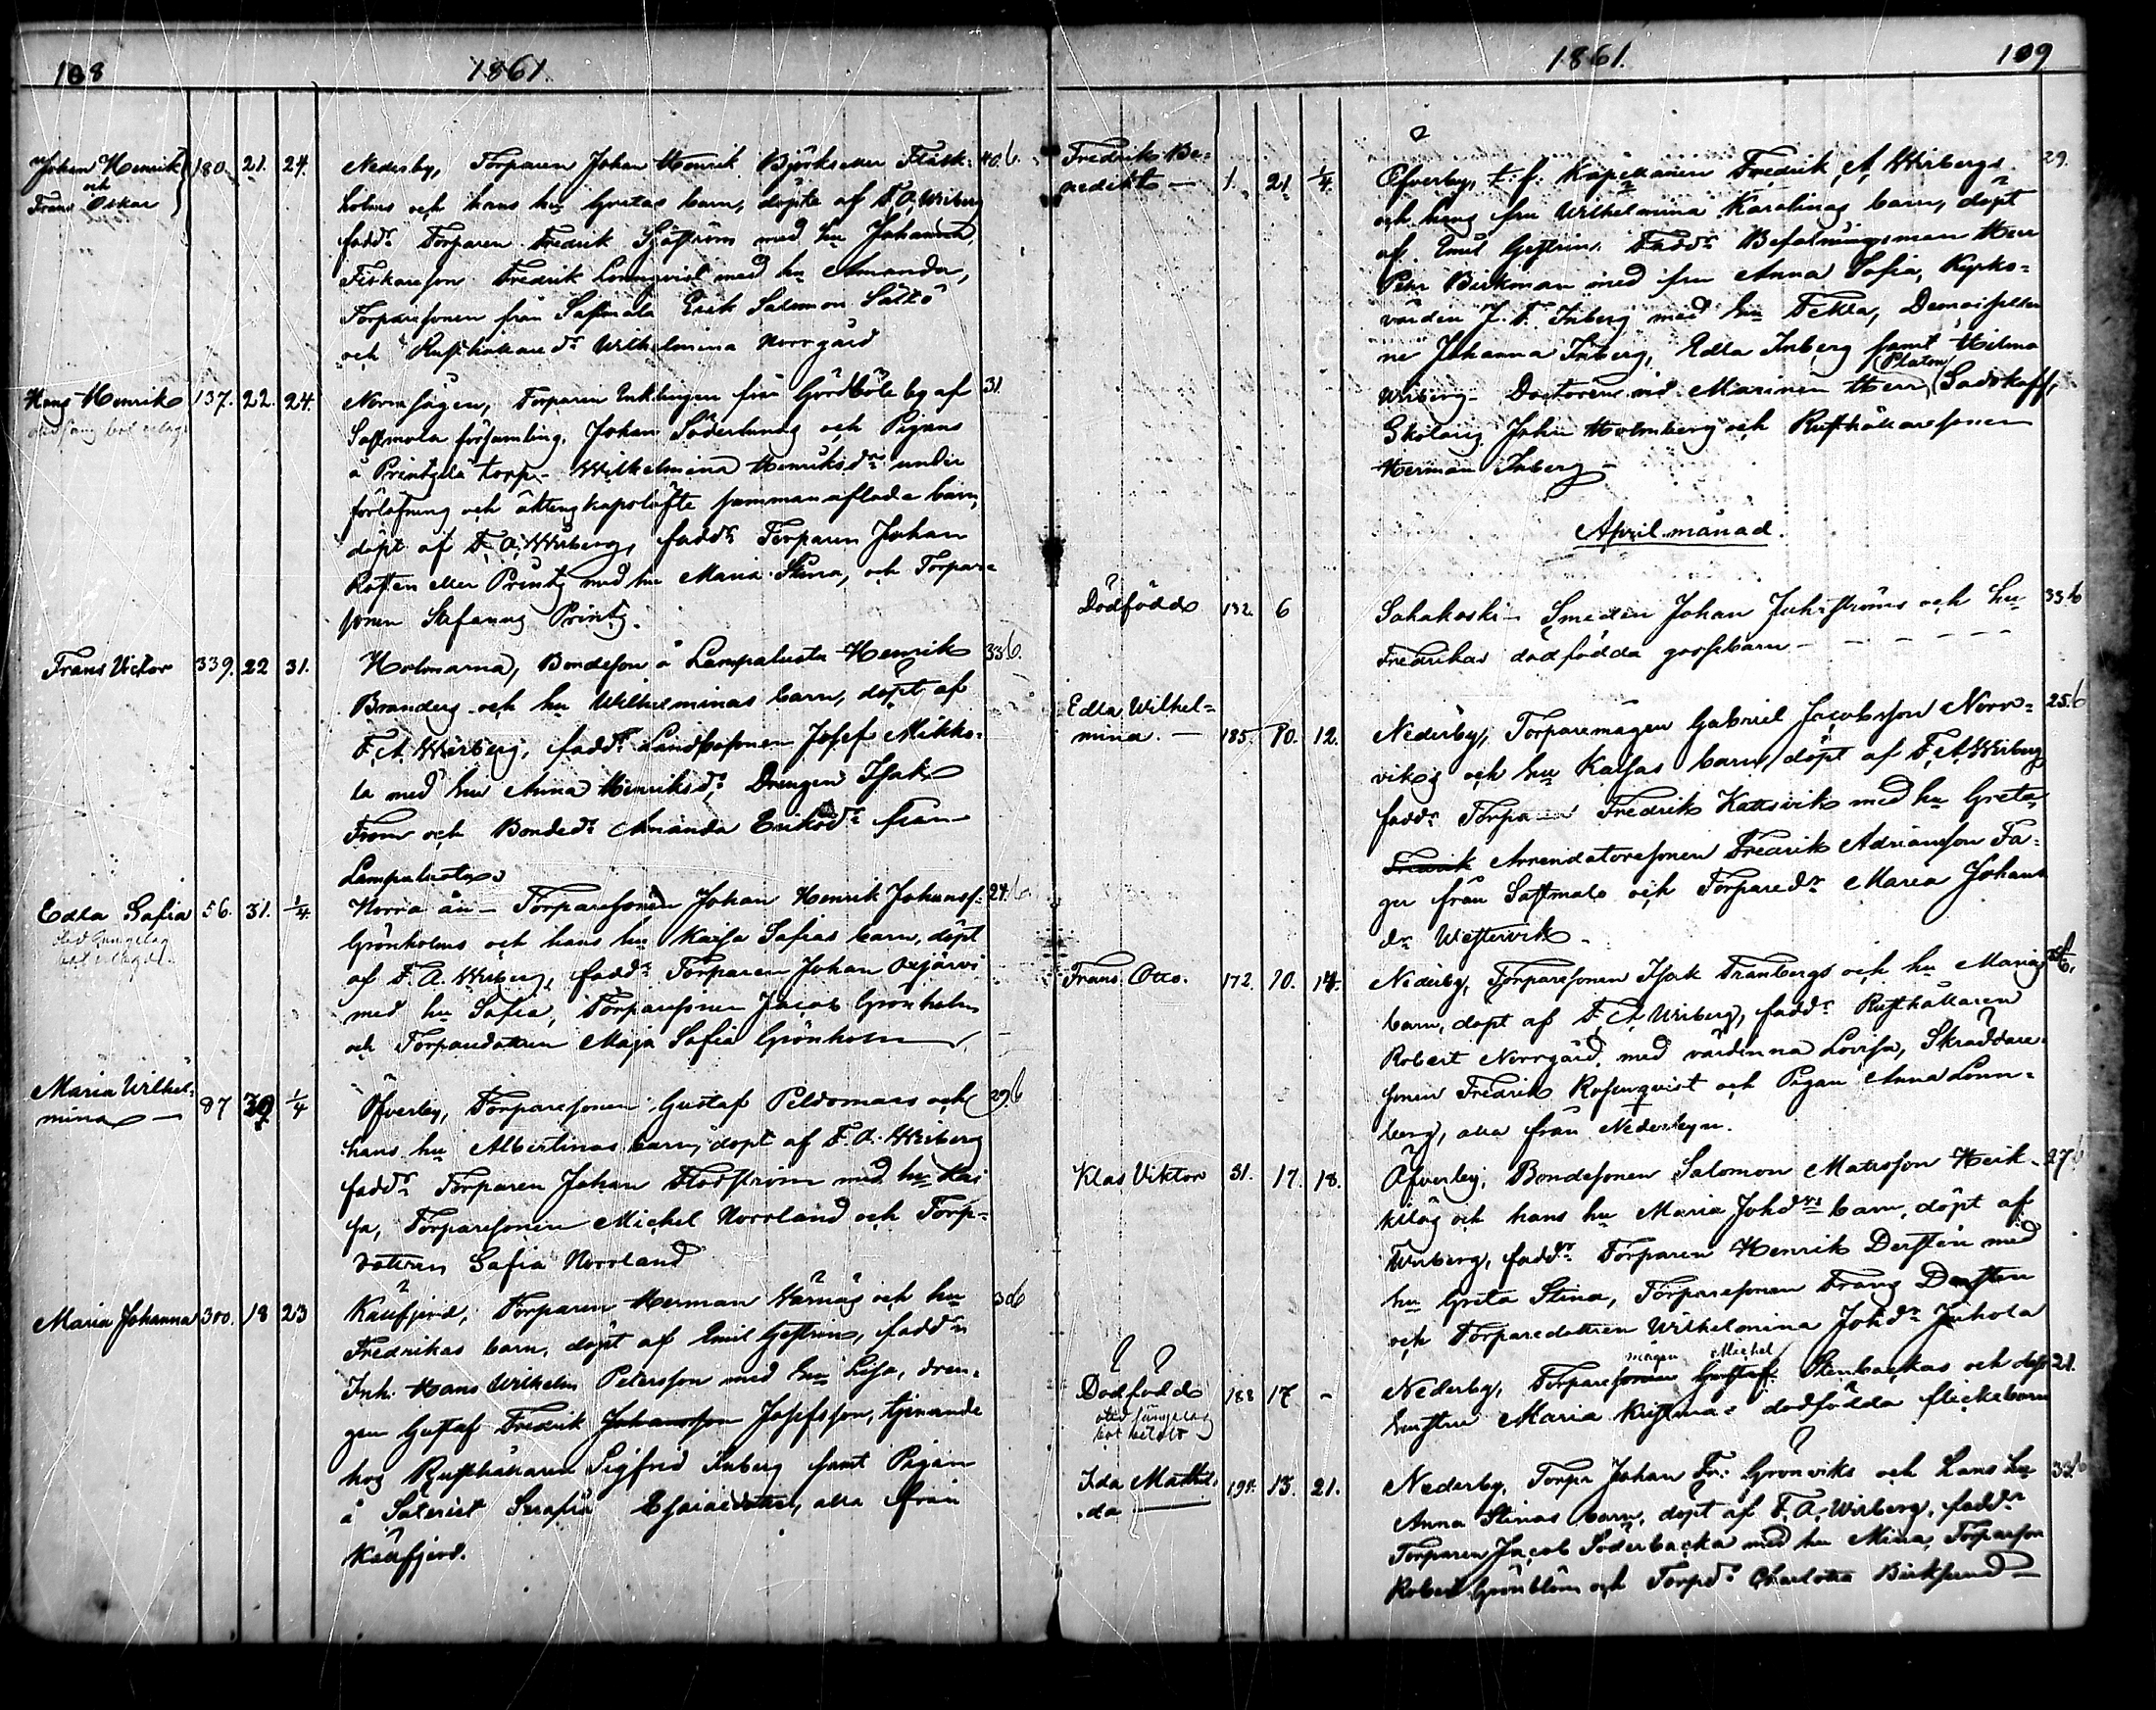 108 1861
Johan Henrik och Frans Oskar 180. 21. 24. Nederby, Torparen Johan Henrik Björkseur Fläsk- 40.b
holms och hans hu Gretas barn, döpte af F. A. Wiberg
fadd:r Torparen Fredrik Sjöström med hu Johanna,
Fiskareson Fredrik Lönnqvist med hu Amanda,
Torparesonen från Sastmola Erik Salomon Sältö
och Rusthållared:r Wilhelmina Norrgård
Hans Henrik 137. 22. 24. Norra sågen, Torparen Inhlingen från Gördböle by af 31.
Sastmola församling, Johan Söderlunds och Pigans
å Printzilä torp- Wilhelmina Henriksd:rs under
förlofning och äktenskapslöfte sammanaflade barn,
döpt af F. A. Wiberg, fadd:r Torparen Johan
Rosten eller Printz med hu Maria Stina, och Torpare
sonen Stefanus Printz.
Frans Victor 339. 22 31. Holmarna, Bondeson å Lampaluoto Henrik 33b.
Branders och hu Wilhelminas barn, döpt af
F. A. Wiberg, fadd:r Landbosonen Josef Mikko-
la med hu Anna Henriksd:r Drengen Isak
From och Bonded:r Amanda Eriksd:r från
Lampaluoto
Edla Sofia 56. 31. 1/4 Norra ån - Torparesonen Johan Henrik Johanss: 24.b
Grönholms och hans hu Kaisa Sofias barn, döpt
af F. A. Wiberg, fadd:r Torparen Johan Oxjärvi
med hu Sofia, Torparesonen Jacob Grönholm
och Torparedottren Maja Sofia Grönholm
Maria Wilhel- 87 30 1/4 Öfverby, Torparesonen Gustaf Peldomaas och 29b
mina - hans hu Albertinas barn, döpt af F. A. Wiberg
fadd:r Torparen Johan Flodström med hu Kai
sa, Torparesonen Michel Norrland och Torp-
dottren Sofia Norrland
Maria Johanna 300. 18 23 Kasfjerd, Torparen Herman Härnäs och hu 30b
Fredrikas barn, döpt af Emil Gestrin, fadd:r
Inh: Hans Wilhelm Petersson med hu Lisa, dren-
gen Gustaf Fredrik Johansson Josefsson, tjenande
hos Rusthållaren Sigfrid Inberg samt Pigan
å Säteriet Serafia Esaiaedotter, alla från
Kasfjerd.
1861. 109
Fredrik Be- 1. 21 1/4. Öfverby, t. f. Kapellanen Fredrik A. Wibergs 29.
nedikt - och hans fru Wilhelmina Karolinas barn, döpt
af Emil Gestrin. Fadd:r Befallningsman Herr
Petr Birkman med fru Anna Sofia, Kyrko-
värden J. F. Inberg med hu Tekla, Demoiseller
ne Johanna Inberg, Edla Inberg samt Hilma
Wiberg- Doctoren vid Marinen Herr (Platon) Sadokoff,
Skolang. John Holmberg och Rusthållaresonen
Herman Inberg -
April månad.
Dödfödd 132. 6 Sahakoski - Smeden Johan Juhlströms och hu 33b
Fredrikas dödfödda gossebarn -
Edla Wilhel-
mina. - 185. 10. 12. Nederby, Torparemågen Gabriel Jacobsson Norr- 25.b
viks och hu Kaisas barn, döpt af F. A. Wiberg
fadd:r Torparen Fredrik Kattsvik med hu Greta
Fredrik Arrendatorsonen Fredrik Adriansson Fa-
ger från Sastmola och Torpared:r Maria Johans
d:r Westervik -
Frans Otto. 172. 10. 14. Nederby, Torparesonen Isak Tranbergs och hu Marias
barn, döpt af F. A. Wiberg, fadd:r Rusthållaren
Robert Norrgård med värdinna Lovisa, Skräddare
sonen Fredrik Rosenqvist och Pigan Anna Lönn-
berg, alla från Nederbyn.
Klas Viktor 31. 17. 18. Öfverby, Bondesonen Salomon Matsson Heik- 27
kiläs och hans hu Maria Johd:rs barn, döpt af
Wiberg, fadd:r Torparen Henrik Dersten med
hu Greta Stina, Torparesonen Frans Dersten
och Torparedottren Wilhelmina Johd:r Juhola
Dödfödd 188 17 - Nederby, Torparesonen mågen Gustaf Michel Stenbackas och dess 21.
hustru Maria Kristinas dödfödda flickebarn
Ida Mathil- 191. 13. 21. Nederby, Torpr Johan Fr: Grönviks och hans hu 33.b
da - Anna Stinas barn, döpt af F. A. Wiberg, fadd:r
Torparen Jacob Söderbacka med hu Mina, Torpareson
Robert Grönblom och Torpd:r Charlotta Birksund -